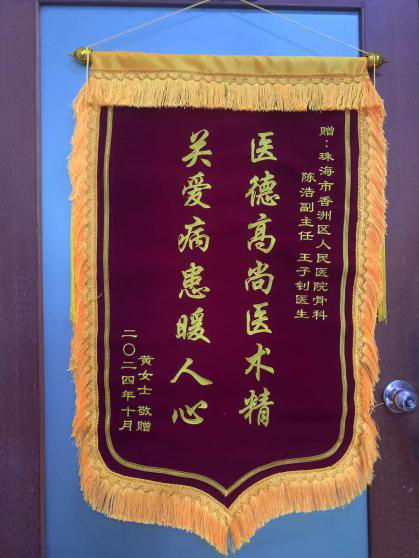 赠：珠海市香洲区人民医院骨科
陈浩副主任 王子钊医生
医德高尚医术精
关爱病患暖人心
黄女士 敬赠
二〇二四年十月